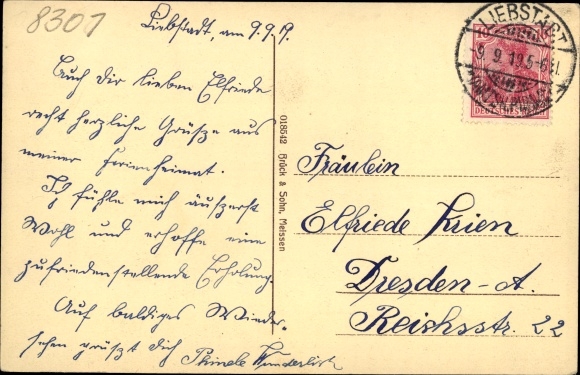 8301
Liebstadt, am 9.9.19.
Auch dir lieben Elfriede
recht herzliche Grüsze aus
meiner Ferienheimat.
Ich fühle mich äuszerst
Wohl und erhoffe eine
zufriedenstellende Erholung.
Auf baldiges Wieder-
sehen grüszt dich Wunderlich
018642 Brück & Sohn, Meissen
LIEBSTADT
9.9.19.5-6N.
10
Fräulein
Elfriede Krien
Dresden-A.
Reichsstr. 22